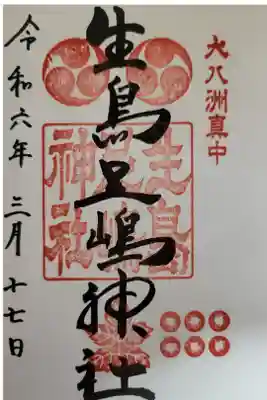 大八洲真中
生島足嶋神社
生島足島神社
令和六年三月十七日